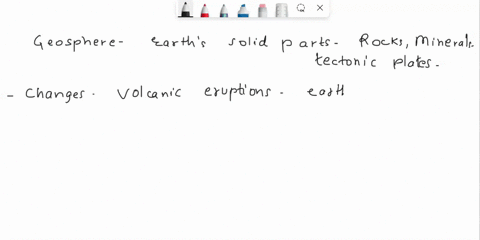 Geosphere- earth's solid parts. Rocks, Minerals.
tectonic plates.
- Changes. Volcanic eruptions. earth